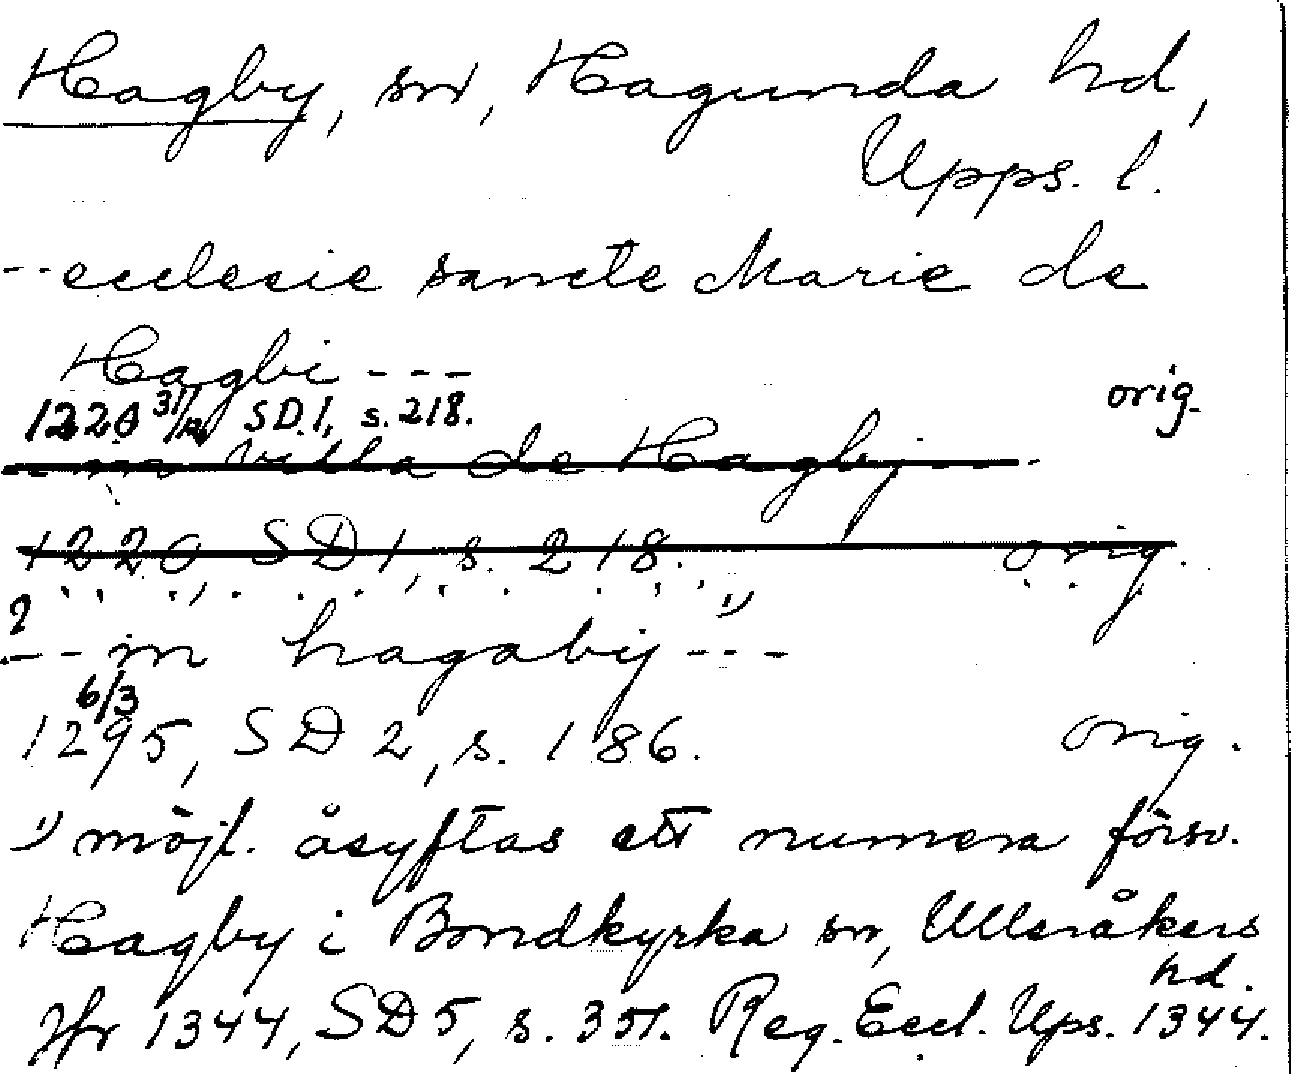 Hagby, sn, Hagunda hd,
Upps. l.
--ecclesie sancte Marie de
Hagbi ---
orig.
1220 31/12, SD.1, s. 218.
-- in villa de Hagby ---
1220, SD 1, s. 218. orig.
? --- in hagaby --- 1)
6/3
1295, SD 2, s. 186. orig.
1) möjl. åsyftas ett numera försv.
Hagby i Bondkyrka sn, Ulleråkers
hd.
Jfr 1344, SD 5, s. 351. Reg. Eccl. Ups. 1344.